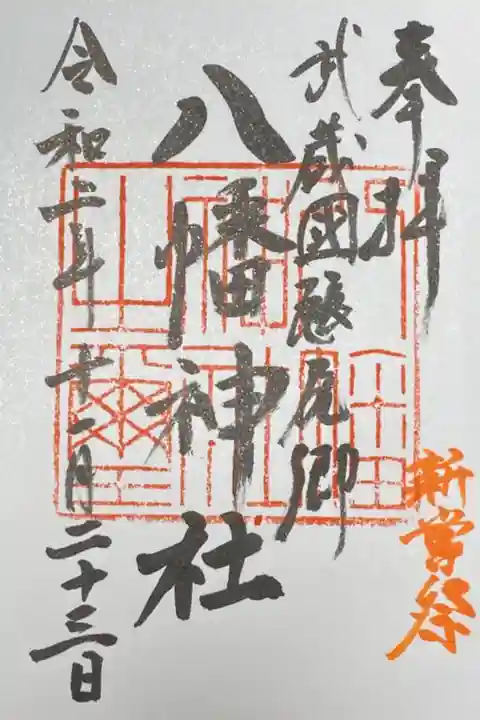 奉拝
新嘗祭
武蔵國懸尾郷
八幡神社
令和二年十一月二十三日